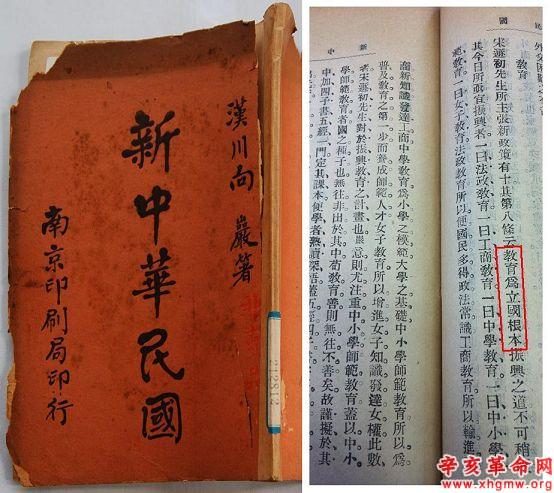 漢川向巖著
新中華民國
南京印刷局印行
民國
教育
宋遯初先生所主張新政策有十其第八條云教育爲立國根本振興之道不可稍
其今日所亟宜振興者一曰法政教育一曰工商教育一曰中學教育一曰中小學
範教育一曰女子教育法政教育所以使國民多得政法常識工商教育所以輸進
新中
商新知識發達工商中學教育爲小學之模範大學之基礎中小學師範教育所以爲
普及教育之第一步而養成師範人才女子教育所以增進女子知識發達女權此數
者宋遯初先生對於振興教育之計畫也巖意則尤注重中小學師範教育蓋以中小
學師範教育者國之種子也無往非出於其中苟教育善則無往不善矣故謹擬於其
中加四子書五經一門定其課本使學者熟讀深語蓋五經四
辛亥革命网
www.xhgmw.org